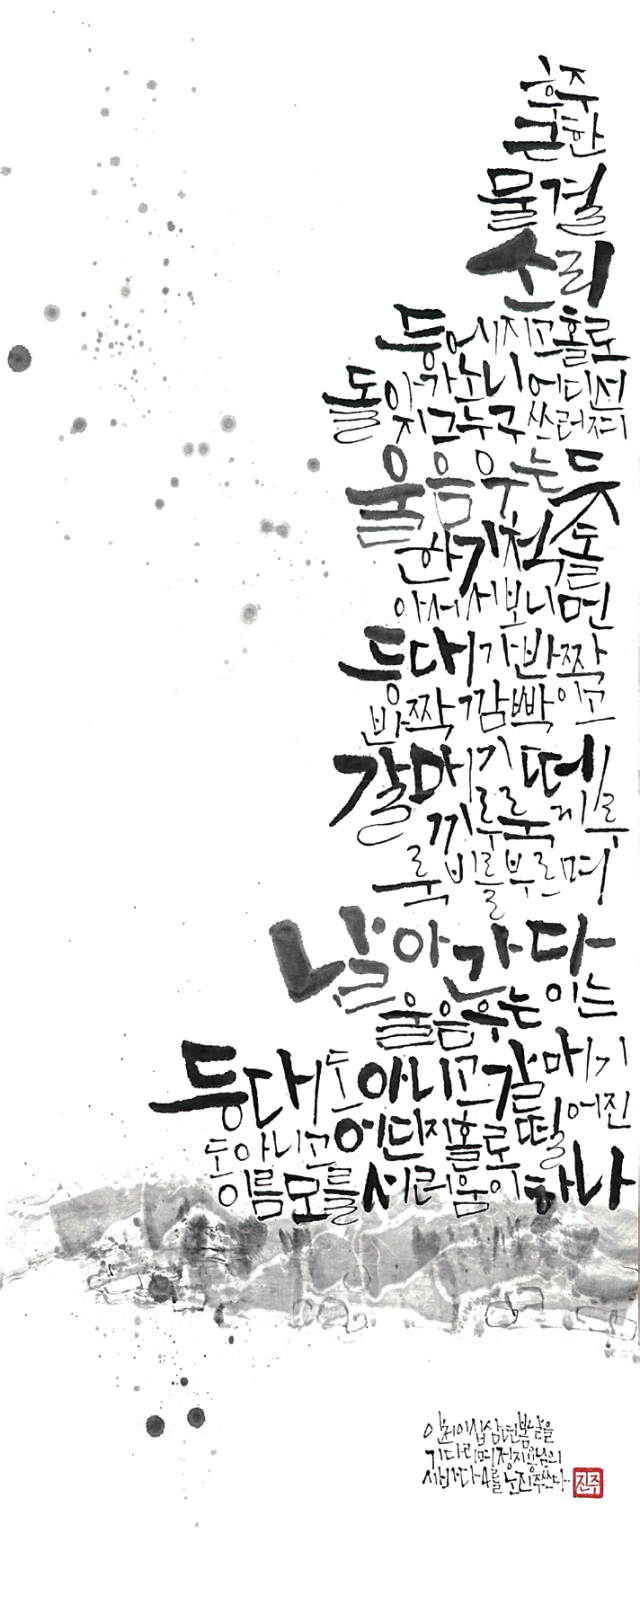 후주
근한
물결
소리
등에 지고 홀로
돌아가노니 어디선
지 그 누구 쓰러져
울음 우는 듯
한 기척 돌
아서서 보니 먼
등대가 반짝
반짝 깜빡이고
갈매기 떼
끼루룩 끼루
룩 비를 부르며
날아간다
울음 우는 이는
등대도 아니고 갈매기
도 아니고 어딘지 홀로 떨어진
이름 모를 서러움이 하나
이천이십삼년 봄날을
기다리며 정지용님의
시 바다4를 진주 쓰다
진주